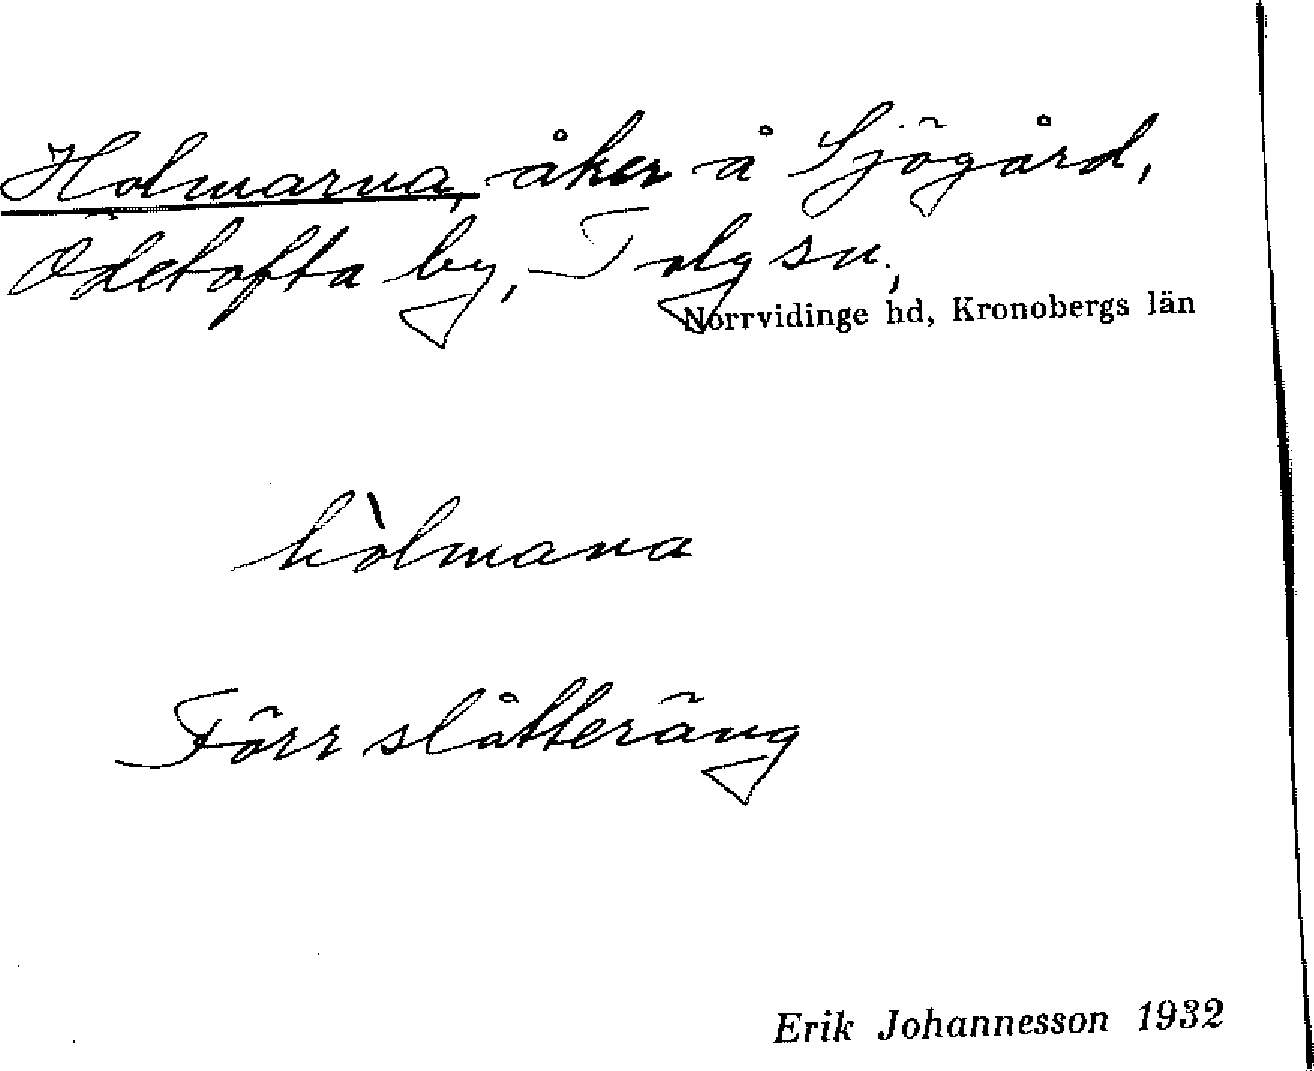 Holmarna, åker å Sjögård,
Ödetofta by, Tolg sn,
Norrvidinge hd, Kronobergs län
hòlmana
Förr slåtteräng
Erik Johannesson 1932